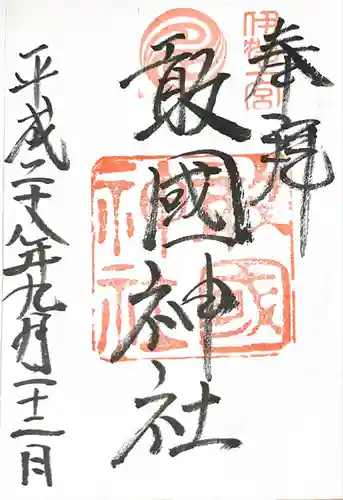 奉拝
伊賀一宮
敢國神社
敢國神社
平成二十八年九月二十二日